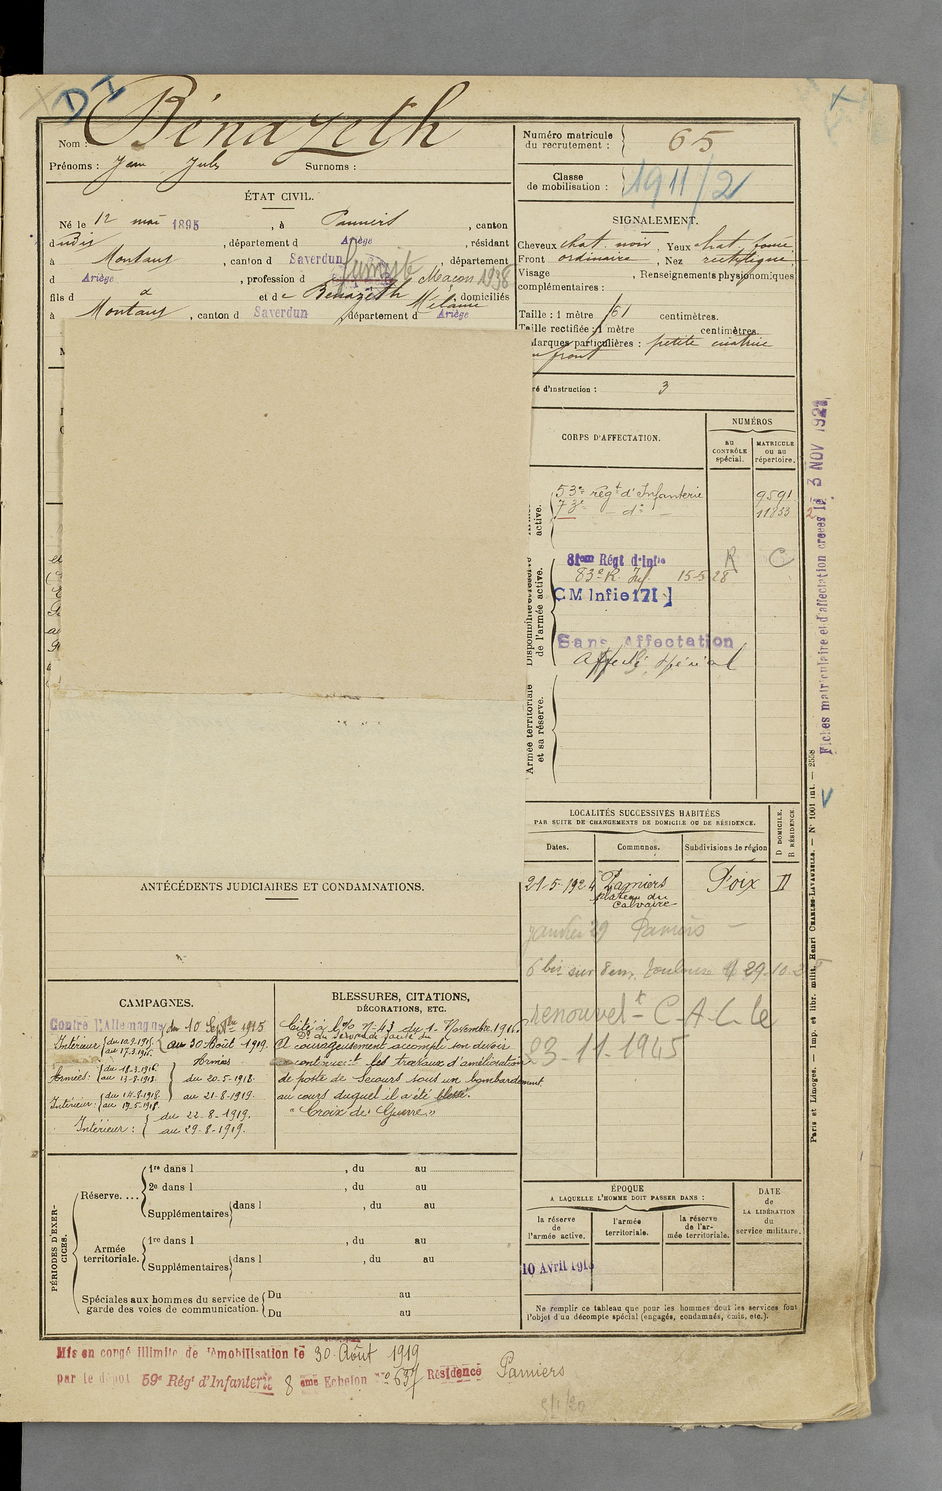 D I
Nom : Bénazeth
Prénoms : Jean Jules Surnoms :
ÉTAT CIVIL.
Né le 12 mai 1895, à Pamiers, canton
dudit, département d Ariège, résidant
à Montaut, canton d Saverdun, département
d Ariège, profession d Fumiste Maçon 1938
fils d et de Benazeth Mélanie, domiciliés
à Montaut, canton d Saverdun, département d Ariège
Numéro matricule du recrutement : 65
Classe de mobilisation : 1911/2
SIGNALEMENT.
Cheveux chat. noir, Yeux chat. foncé
Front ordinaire, Nez rectiligne
Visage , Renseignements physionomiques
complémentaires :
Taille : 1 mètre 61 centimètres.
Taille rectifiée : 1 mètre centimètres.
Marques particulières : petite cicatrice
front
ré d'instruction : 3
CORPS D'AFFECTATION.
NUMÉROS
AU CONTRÔLE spécial.
MATRICULE ou au répertoire.
active.
53e régt d'Infanterie 9591
73e – d° – 11833
Disponibilité et réserve de l'armée active.
81eme Régt d'Infie R C
83e R. Inf. 15-5-28
C M Infie 171
Sans Affectation
Affecté spécial
Armée territoriale et sa réserve.
LOCALITÉS SUCCESSIVES HABITÉES
PAR SUITE DE CHANGEMENTS DE DOMICILE OU DE RÉSIDENCE.
Dates. Communes. Subdivisions de région
D DOMICILE.
R RÉSIDENCE
21-5-1924 Pamiers Foix D
plateau du
Calvaire
janvier 29 Pamiers –
6 bis rue Toulouse 29-10-
renouvelt – C-A-C- le
23-11-1945
ANTÉCÉDENTS JUDICIAIRES ET CONDAMNATIONS.
CAMPAGNES.
Contre l'Allemagne du 10 Septbre 1915
au 30 Août 1919.
Intérieur { du 10.9.1915.
au 17.3.1916.
Armées
Armées : { du 18.3.1916.
au 13.8.1918.
du 20-5-1918.
au 21-8-1919.
Intérieur : { du 14.8.1918.
au 19.5.1918.
Intérieur : { du 22-8-1919.
au 29-8-1919.
BLESSURES, CITATIONS,
DÉCORATIONS, ETC.
Cité à l'o/ n° 43 du 1er Novembre 1916.
Dr du Service de Santé du
A courageusement accompli son devoir
continuant les travaux d'amélioration
de poste de Secours sous un bombardement
au cours duquel il a été blessé.
"Croix de Guerre"
PÉRIODES D'EXERCICES.
Réserve....
1re dans l , du au
2e dans l , du au
Supplémentaires dans l , du au
Armée territoriale.
1re dans l , du au
Supplémentaires dans l , du au
Spéciales aux hommes du service de garde des voies de communication.
Du au
Du au
ÉPOQUE
A LAQUELLE L'HOMME DOIT PASSER DANS :
la réserve de l'armée active.
l'armée territoriale.
la réserve de l'armée territoriale.
DATE de LA LIBÉRATION du service militaire.
10 Avril 191
Ne remplir ce tableau que pour les hommes dont les services font
l'objet d'un décompte spécial (engagés, condamnés, omis, etc.).
Mis en congé illimité de démobilisation le 30 Août 1919
par le dépôt 59e Régt d'Infanterie 8 eme Echelon N° 637 Résidence Pamiers
8/1/20
Fiches matriculaire et d'affectation créées le 23 NOV 1921
Paris et Limoges. — Imp. et libr. milit. Henri CHARLES-LAVAUZELLE. — N° 1001 int. — 2558